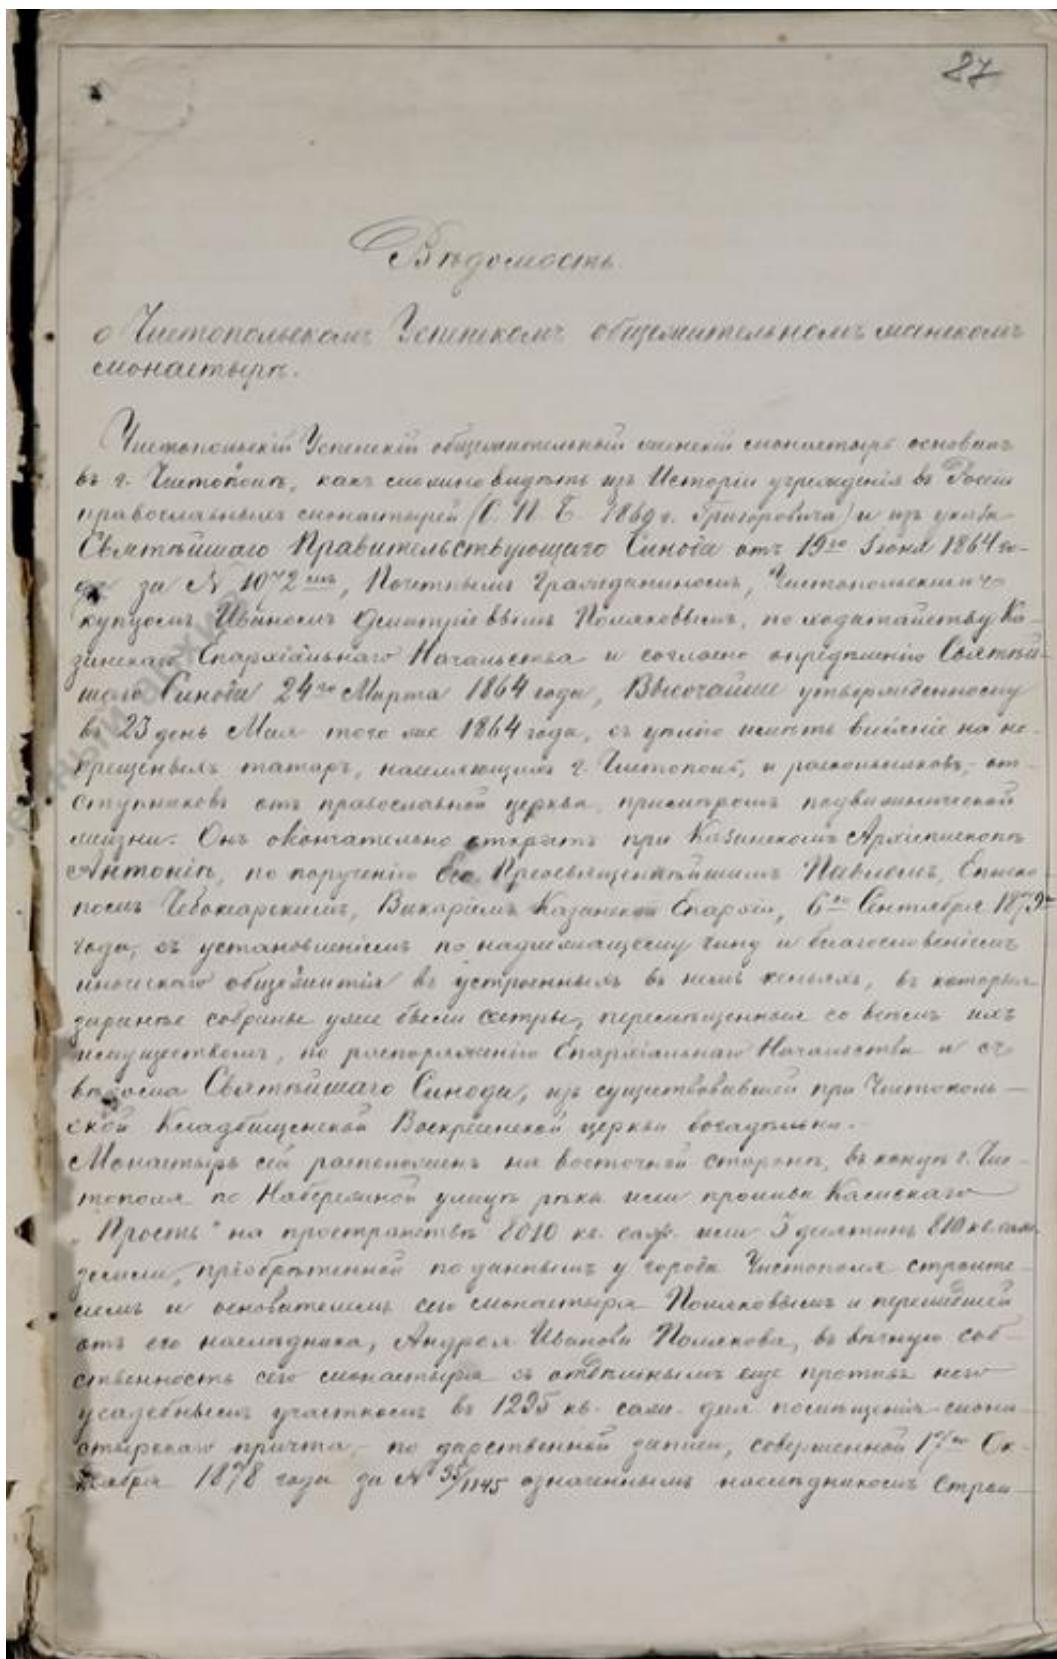 27
Вѣдомость
о Чистопольскомъ Успенскомъ общежительномъ женскомъ
монастырѣ.
Чистопольскій Успенскій общежительный женскій монастырь основанъ
въ г. Чистополѣ, какъ можно видѣть изъ Исторіи учрежденія въ Россіи
православныхъ монастырей (С. П. Б. 1869 г. Григоровича) и изъ указа
Святѣйшаго Правительствующаго Синода отъ 19го Іюня 1864 го-
да за № 1072мъ, Почетнымъ Гражданиномъ, Чистопольскимъ
купцомъ Иваномъ Дмитріевымъ Поляковымъ, по ходатайству Ка-
занскаго Епархіальнаго Начальства и согласно опредѣленію Святѣй-
шаго Синода 24го Марта 1864 года, Высочайше утвержденному
въ 23 день Мая того же 1864 года, съ цѣлію имѣть вліяніе на не-
крещеныхъ татаръ, населяющихъ г. Чистополь, и раскольниковъ, от-
ступниковъ отъ православной церкви, примѣромъ подвижнической
жизни. Онъ окончательно открытъ при Казанскомъ Архіепископѣ
Антоніѣ, по порученію Его, Преосвященнѣйшимъ Павломъ, Еписко-
помъ Чебоксарскимъ, Викаріемъ Казанской Епархіи, 6го Сентября 1879
года, съ установленіемъ по надлежащему чину и благословеніемъ
иноческаго общежитія въ устроенныхъ въ немъ кельяхъ, въ которыя
заранѣе собраны уже были сестры, перемѣщенныя со всѣмъ ихъ
имуществомъ, по распоряженію Епархіальнаго Начальства и съ
вѣдома Святѣйшаго Синода, изъ существовавшей при Чистополь-
ской Кладбищенской Воскресенской церкви богадѣльни.
Монастырь сей расположенъ на восточной сторонѣ, въ концѣ г. Чис-
тополя по Набережной улицѣ рѣки или пролива Камскаго
„Прость" на пространствѣ 8010 кв. саж. или 3 десятинъ 810 кв. саж.
земли, пріобрѣтенной по даннымъ у города Чистополя строите-
лемъ и основателемъ сего монастыря Поляковымъ и перешедшей
отъ его наслѣдника, Андрея Иванова Полякова, въ вѣчную соб-
ственность сего монастыря съ отдѣльнымъ еще противъ него
усадебнымъ участкомъ въ 1295 кв. саж. для помѣщенія мона-
стырскаго причта, по дарственной записи, совершенной 17го Ок-
тября 1878 года за № /1145 означеннымъ наслѣдникомъ Строи-